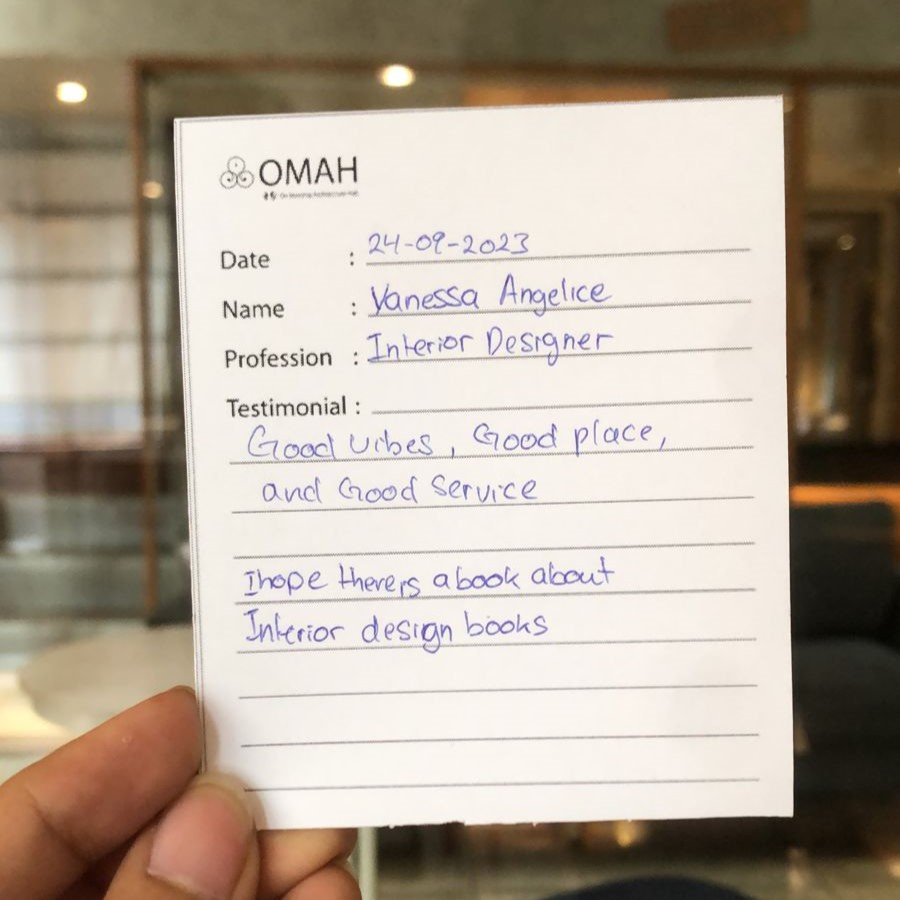 OMAH
Date : 24-09-2023
Name : Vanessa Angelice
Profession : Interior Designer
Testimonial :
Good vibes, Good place,
and Good Service
I hope there is a book about
Interior design books